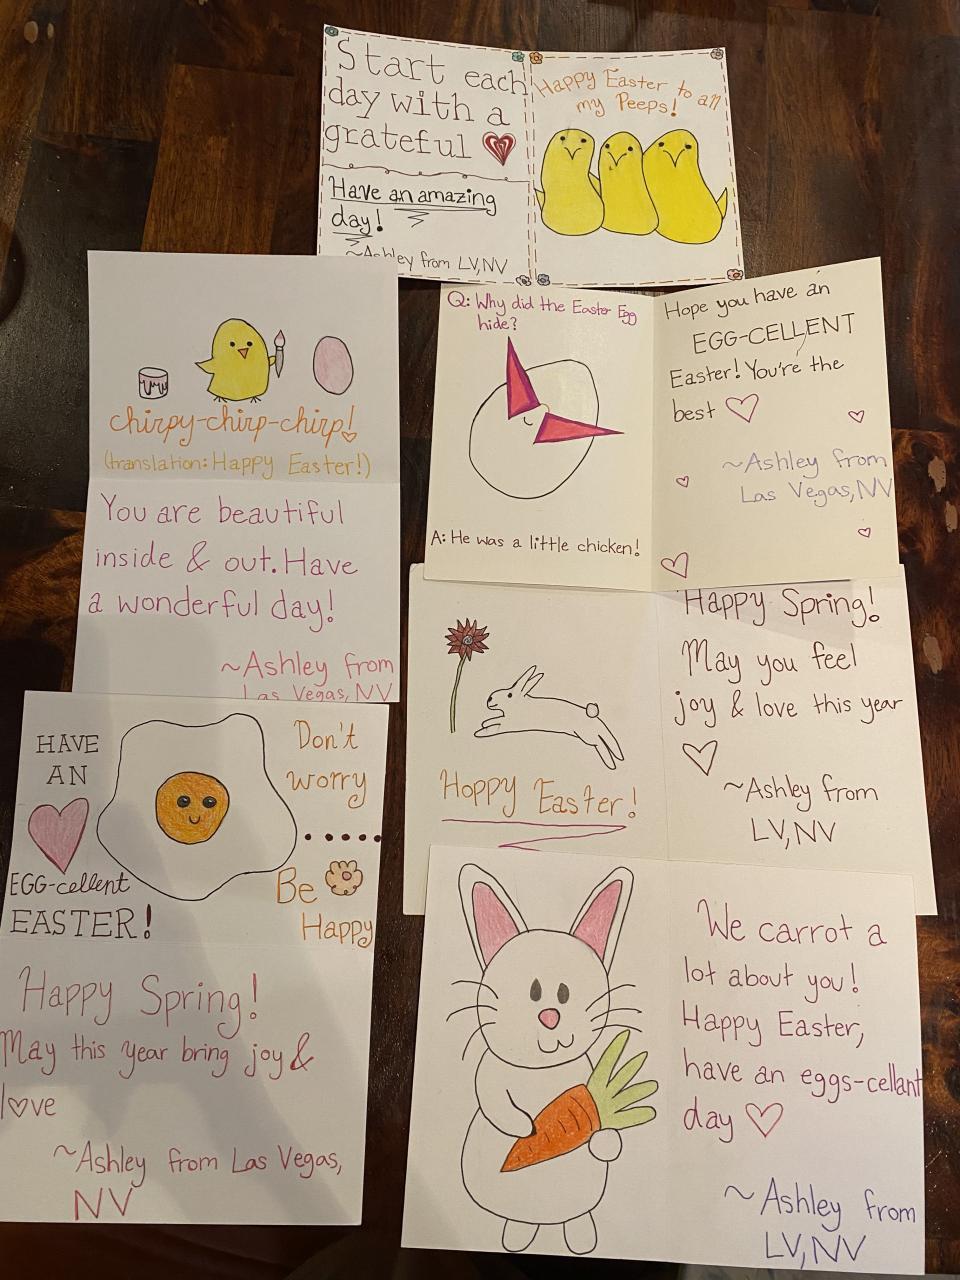 Start each
day with a
grateful
Have an amazing
day!
~Ashley from LV,NV
Happy Easter to all
my Peeps!
chirpy-chirp-chirp!
(translation: Happy Easter!)
You are beautiful
inside & out. Have
a wonderful day!
~Ashley from
Las Vegas, NV
Q: Why did the Easter Egg
hide?
A: He was a little chicken!
Hope you have an
EGG-CELLENT
Easter! You're the
best
~Ashley from
Las Vegas, NV
Hoppy Easter!
Happy Spring!
May you feel
joy & love this year
~Ashley from
LV, NV
HAVE
AN
EGG-cellent
EASTER!
Don't
worry
Be
Happy
Happy Spring!
May this year bring joy &
love
~Ashley from Las Vegas,
NV
We carrot a
lot about you!
Happy Easter,
have an eggs-cellant
day
~Ashley from
LV, NV